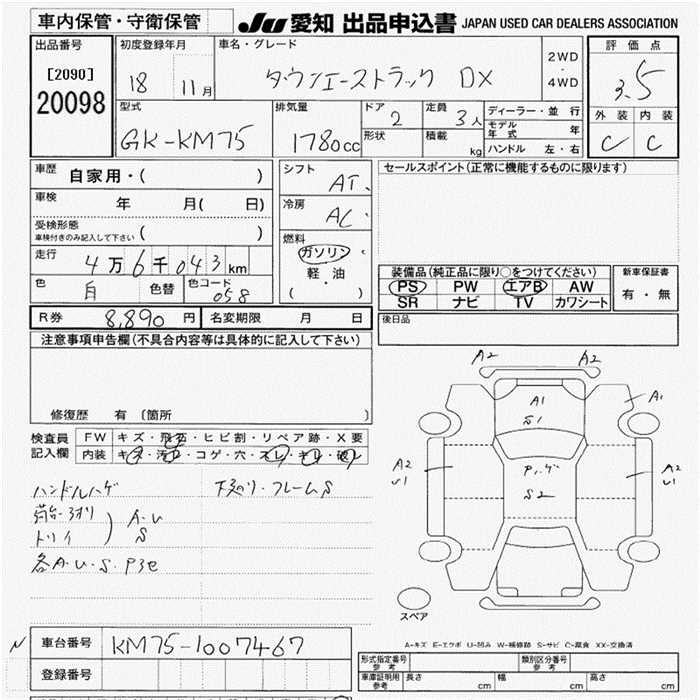 車内保管・守衛保管
JU 愛知 出品申込書 JAPAN USED CAR DEALERS ASSOCIATION
出品番号
[2090]
20098
初度登録年月
18 11月
車名・グレード
タウンエーストラック DX
2WD
・
4WD
評価点
3.5
外装 内装
C C
型式
GK-KM75
排気量
1780cc
ドア
2
形状
定員
3人
積載
kg
ディーラー・並行
モデル年式 年
ハンドル 左・右
車歴
自家用・( )
車検
年 月( 日)
受検形態
車検付きのみ記入して下さい ( )
走行
4万6千043km
色
白
色替
色コード
058
シフト
AT
冷房
AC
燃料
ガソリン
軽・油
( )
セールスポイント(正常に機能するものに限ります)
装備品(純正品に限り○をつけてください)
PS PW エアB AW
SR ナビ TV カワシート
新車保証書
有・無
後日品
R券 8,890円
名変期限 月 日
注意事項申告欄(不具合内容等は具体的に記入して下さい)
修復歴 有 〔箇所 〕
検査員記入欄
FW キズ・飛石・ヒビ割・リペア跡・X要
内装 キズ・汚れ・コゲ・穴・スレ・キレ・破レ
ハンドルハゲ
下廻り・フレームS
荷台・アオリ
トリイ
A・U
S
各A・U・S・P3e
A2 A2
A1
S1
A1
A2
U1
A2
U1
P.ハゲ
S2
スペア
A-キズ E-エクボ U-凹み W-補修跡 S-サビ C-腐食 XX-交換済
N
車台番号
KM75-1007467
登録番号
形式指定番号
参考
類別区分番号
参考
車庫証明用
参考
長さ cm
幅 cm
高さ cm